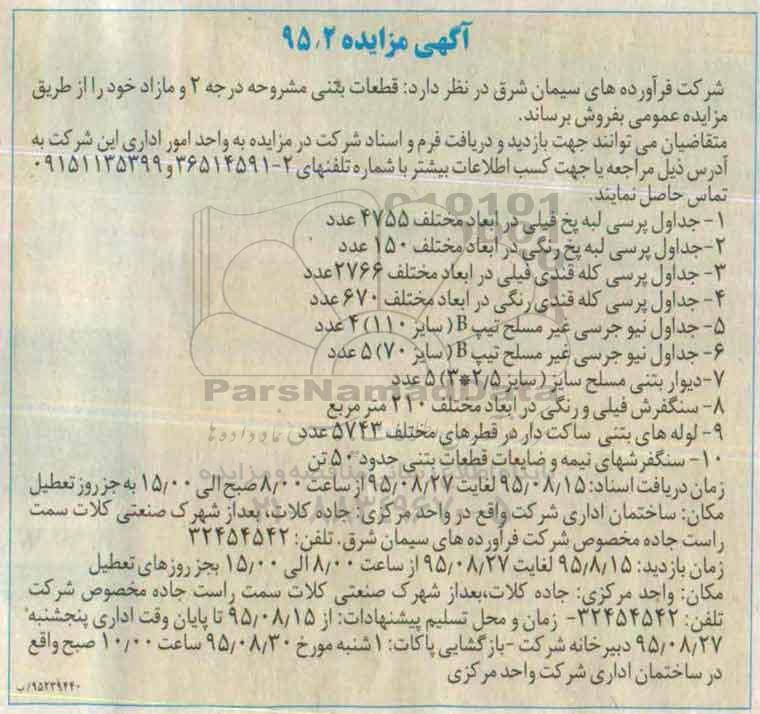 آگهی مزایده ۹۵٫۲
شرکت فرآورده های سیمان شرق در نظر دارد: قطعات بتنی مشروحه درجه ۲ و مازاد خود را از طریق
مزایده عمومی بفروش برساند.
متقاضیان می توانند جهت بازدید و دریافت فرم و اسناد شرکت در مزایده به واحد امور اداری این شرکت به
آدرس ذیل مراجعه یا جهت کسب اطلاعات بیشتر با شماره تلفنهای ۲-۳۶۵۱۴۵۹۱ و ۰۹۱۵۱۱۳۵۳۹۹
تماس حاصل نمایند.
۱- جداول پرسی لبه پخ فیلی در ابعاد مختلف ۴۷۵۵ عدد
۲-جداول پرسی لبه پخ رنگی در ابعاد مختلف ۱۵۰ عدد
۳- جداول پرسی کله قندی فیلی در ابعاد مختلف ۲۷۶۶عدد
۴- جداول پرسی کله قندی رنگی در ابعاد مختلف ۶۷۰عدد
۵- جداول نیو جرسی غیر مسلح تیپ B (سایز ۱۱۰) ۴ عدد
۶- جداول نیو جرسی غیر مسلح تیپ B (سایز ۷۰) ۵ عدد
۷-دیوار بتنی مسلح سایز (سایز ۲٫۵*۳) ۵ عدد
ParsNamadData
۸- سنگفرش فیلی و رنگی در ابعاد مختلف ۲۱۰ متر مربع
۹- لوله های بتنی ساکت دار در قطرهای مختلف ۵۷۴۳ عدد
۱۰- سنگفرشهای نیمه و ضایعات قطعات بتنی حدود ۵۰ تن
زمان دریافت اسناد: ۹۵٫۰۸٫۱۵ لغایت ۹۵٫۰۸٫۲۷ از ساعت ۸٫۰۰ صبح الی ۱۵٫۰۰ به جز روز تعطیل
مکان: ساختمان اداری شرکت واقع در واحد مرکزی: جاده کلات، بعداز شهرک صنعتی کلات سمت
راست جاده مخصوص شرکت فرآورده های سیمان شرق. تلفن: ۳۲۴۵۴۵۴۲
زمان بازدید: ۹۵٫۸٫۱۵ لغایت ۹۵٫۰۸٫۲۷ از ساعت ۸٫۰۰ الی ۱۵٫۰۰ بجز روزهای تعطیل
مکان: واحد مرکزی: جاده کلات،بعداز شهرک صنعتی کلات سمت راست جاده مخصوص شرکت
تلفن: ۳۲۴۵۴۵۴۲- زمان و محل تسلیم پیشنهادات: از ۹۵٫۰۸٫۱۵ تا پایان وقت اداری پنجشنبه
۹۵٫۰۸٫۲۷ دبیرخانه شرکت -بازگشایی پاکات: ۱ شنبه مورخ ۹۵٫۰۸٫۳۰ ساعت ۱۰٫۰۰ صبح واقع
در ساختمان اداری شرکت واحد مرکزی
۹۵۲۳۹۴۴۰/ب